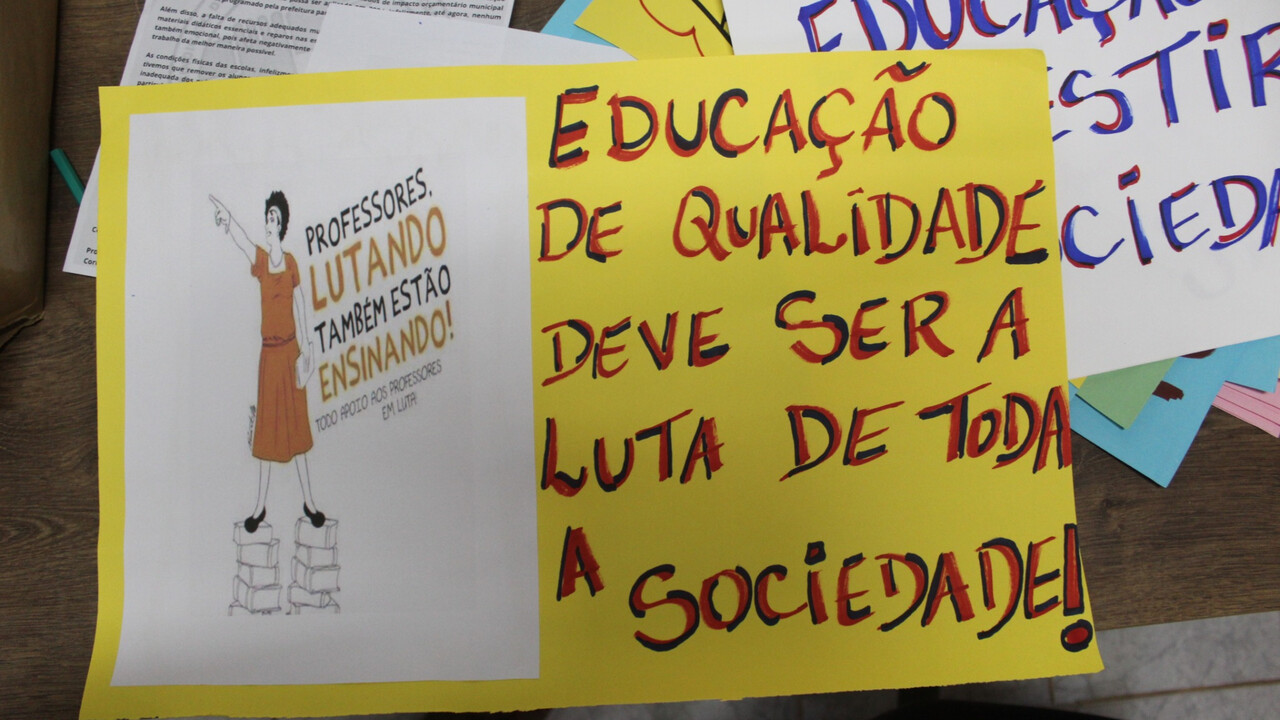 programado pela prefeitura
de impacto orçamentário municipal
até agora, nenhum
Além disso, a falta de recursos adequados
materiais didáticos essenciais e reparos nas
também emocional, pois afeta negativamente
trabalho da melhor maneira possível.
As condições físicas das escolas,
tivemos que remover os
inadequada
EDUCAÇÃO
ESTIR
CIEDA
PROFESSORES,
LUTANDO
TAMBÉM ESTÃO
ENSINANDO!
TODO APOIO AOS PROFESSORES
EM LUTA!
EDUCAÇÃO
DE QUALIDADE
DEVE SER A
LUTA DE TODA
A SOCIEDADE!